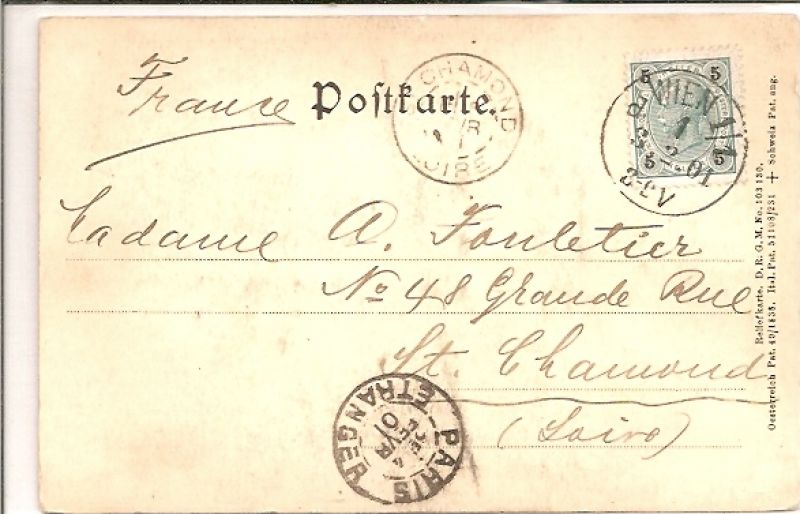 France
Postkarte.
CHAMOND
LOIRE
5 5
WIEN 1/1
1
2 01
5 5
Madame A. Fouletier
No 48 Grande Rue
St. Chamond
(Loire)
PARIS ETRANGER
FEVR
01
Reliefkarte. D. R. G. M. No. 103 130.
Oesterreich Pat. 49/1835. Ital. Pat. 51108/231 + Schweiz Pat. ang.